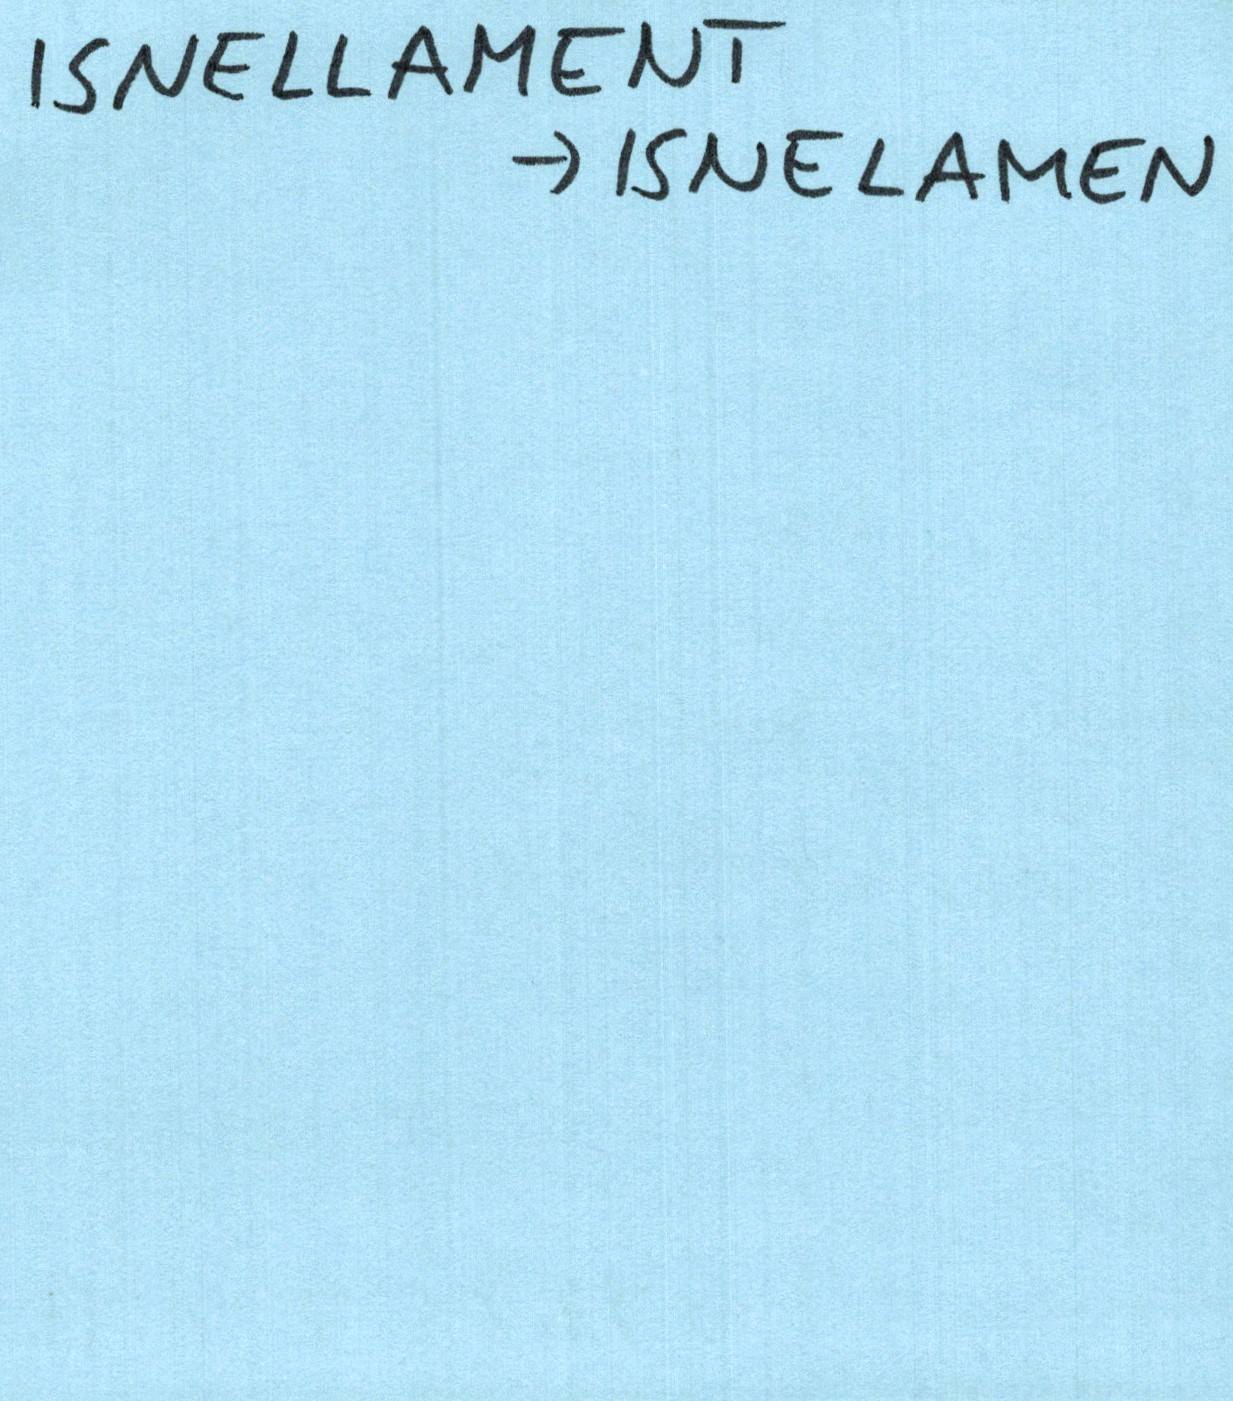 ISNELLAMENT
→ ISNELAMEN